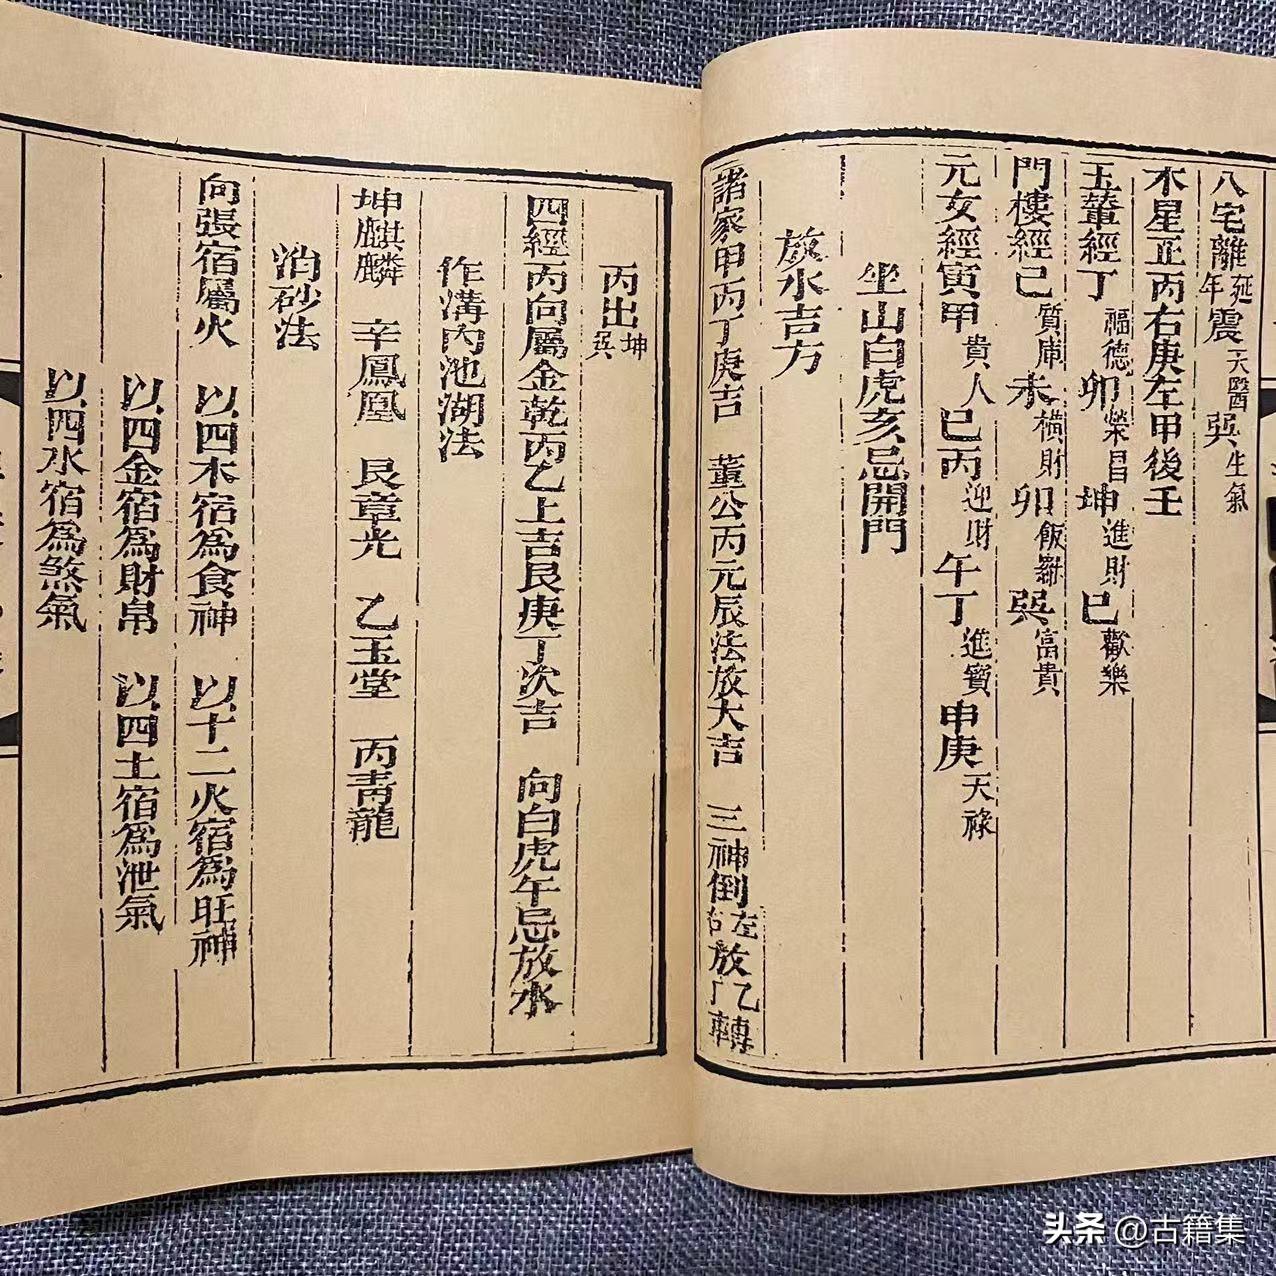 八宅離延年震天醫巽生氣
木星正丙右庚左甲後壬
玉輦經丁福德卯榮昌坤進財巳歡樂
門樓經巳質庫未橫財卯飯籮巽富貴
元女經寅甲貴人巳丙迎財午丁進寶申庚天祿
坐山白虎亥忌開門
放水吉方
諸家甲丙丁庚吉 董公丙元辰法放大吉 三神倒左右放乙丁轉
丙出坤巽
四經丙向屬金乾丙乙上吉艮庚丁次吉 向白虎午忌放水
作溝內池湖法
坤麒麟 辛鳳凰 艮章光 乙玉堂 丙青龍
消砂法
向張宿屬火 以四木宿為食神 以十二火宿為旺神
以四金宿為財帛 以四土宿為泄氣
以四水宿為煞氣
头条 @古籍集